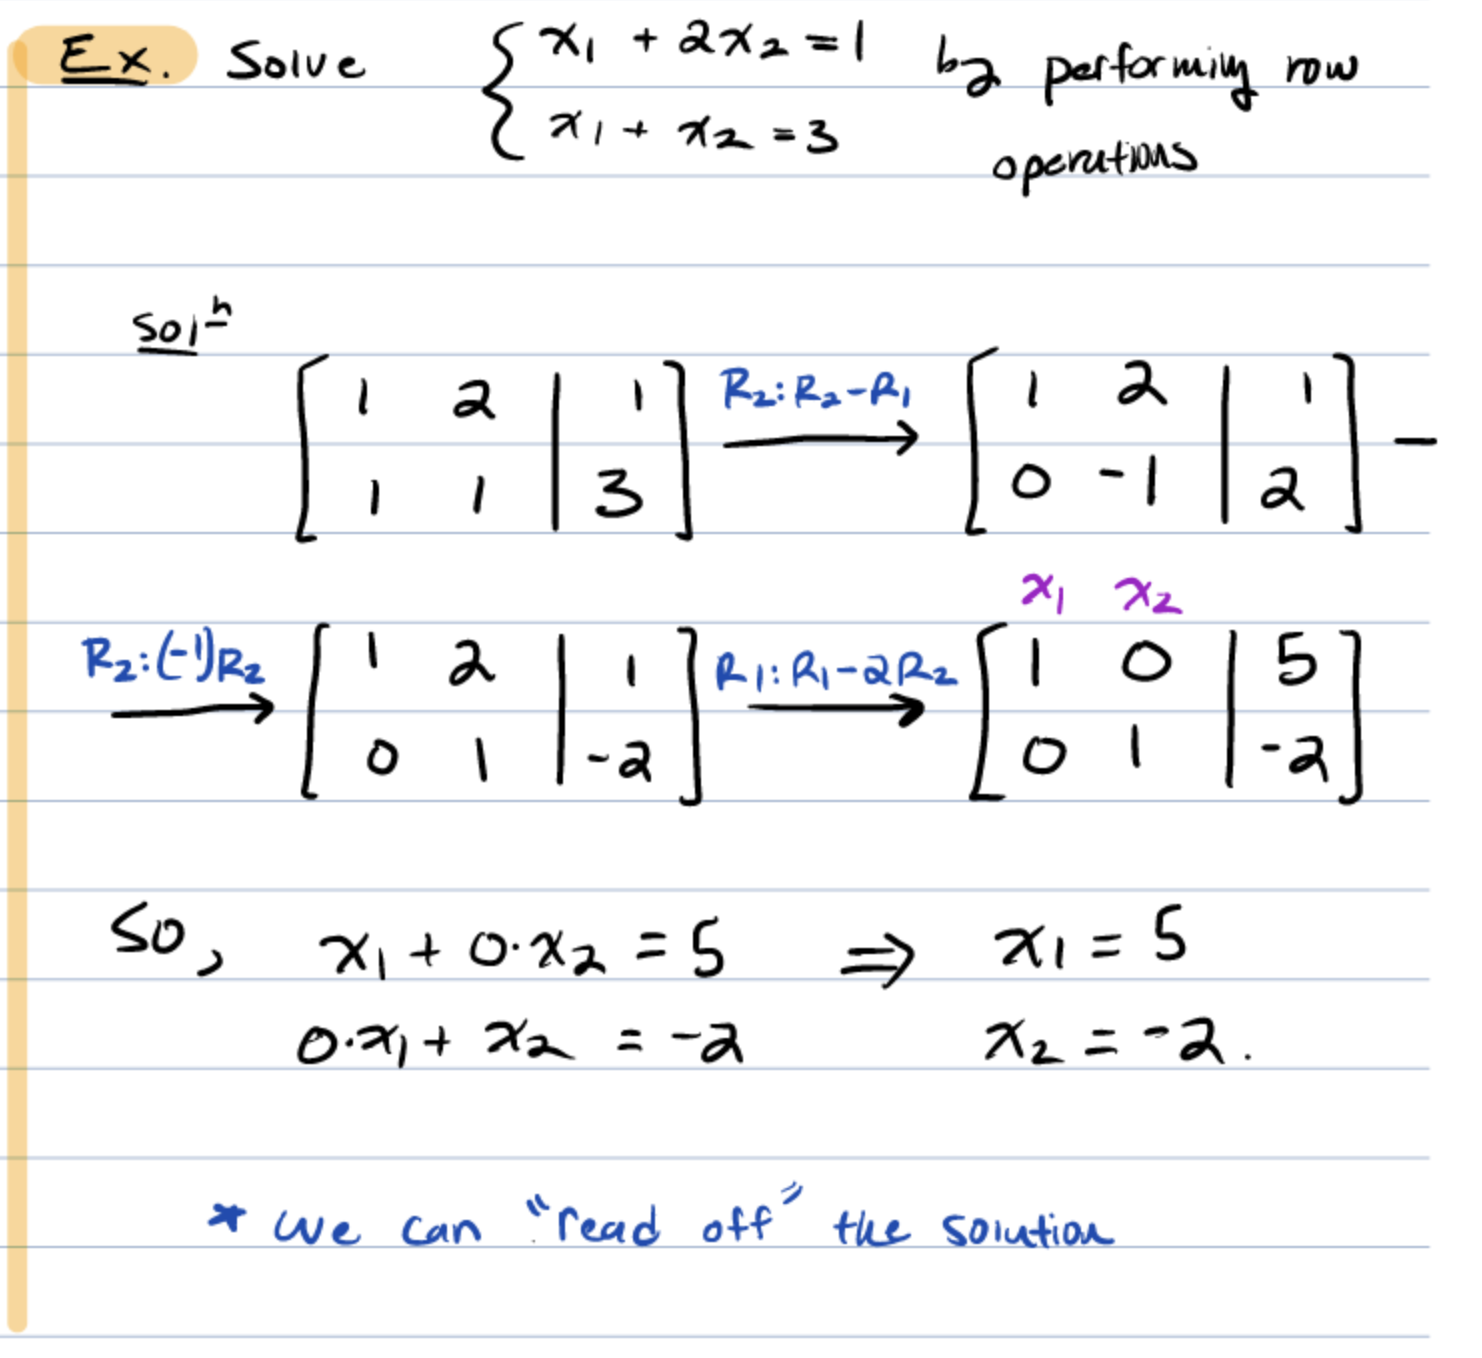 Ex. Solve { x₁ + 2x₂ = 1 by performing row
x₁ + x₂ = 3 operations
Solⁿ
[ 1 2 | 1 ] R₂: R₂-R₁ → [ 1 2 | 1 ] -
[ 1 1 | 3 ] [ 0 -1 | 2 ]
x₁ x₂
R₂: (-1)R₂ → [ 1 2 | 1 ] R₁: R₁-2R₂ → [ 1 0 | 5 ]
[ 0 1 | -2 ] [ 0 1 | -2 ]
So, x₁ + 0·x₂ = 5 ⇒ x₁ = 5
0·x₁ + x₂ = -2 x₂ = -2.
* we can "read off" the solution